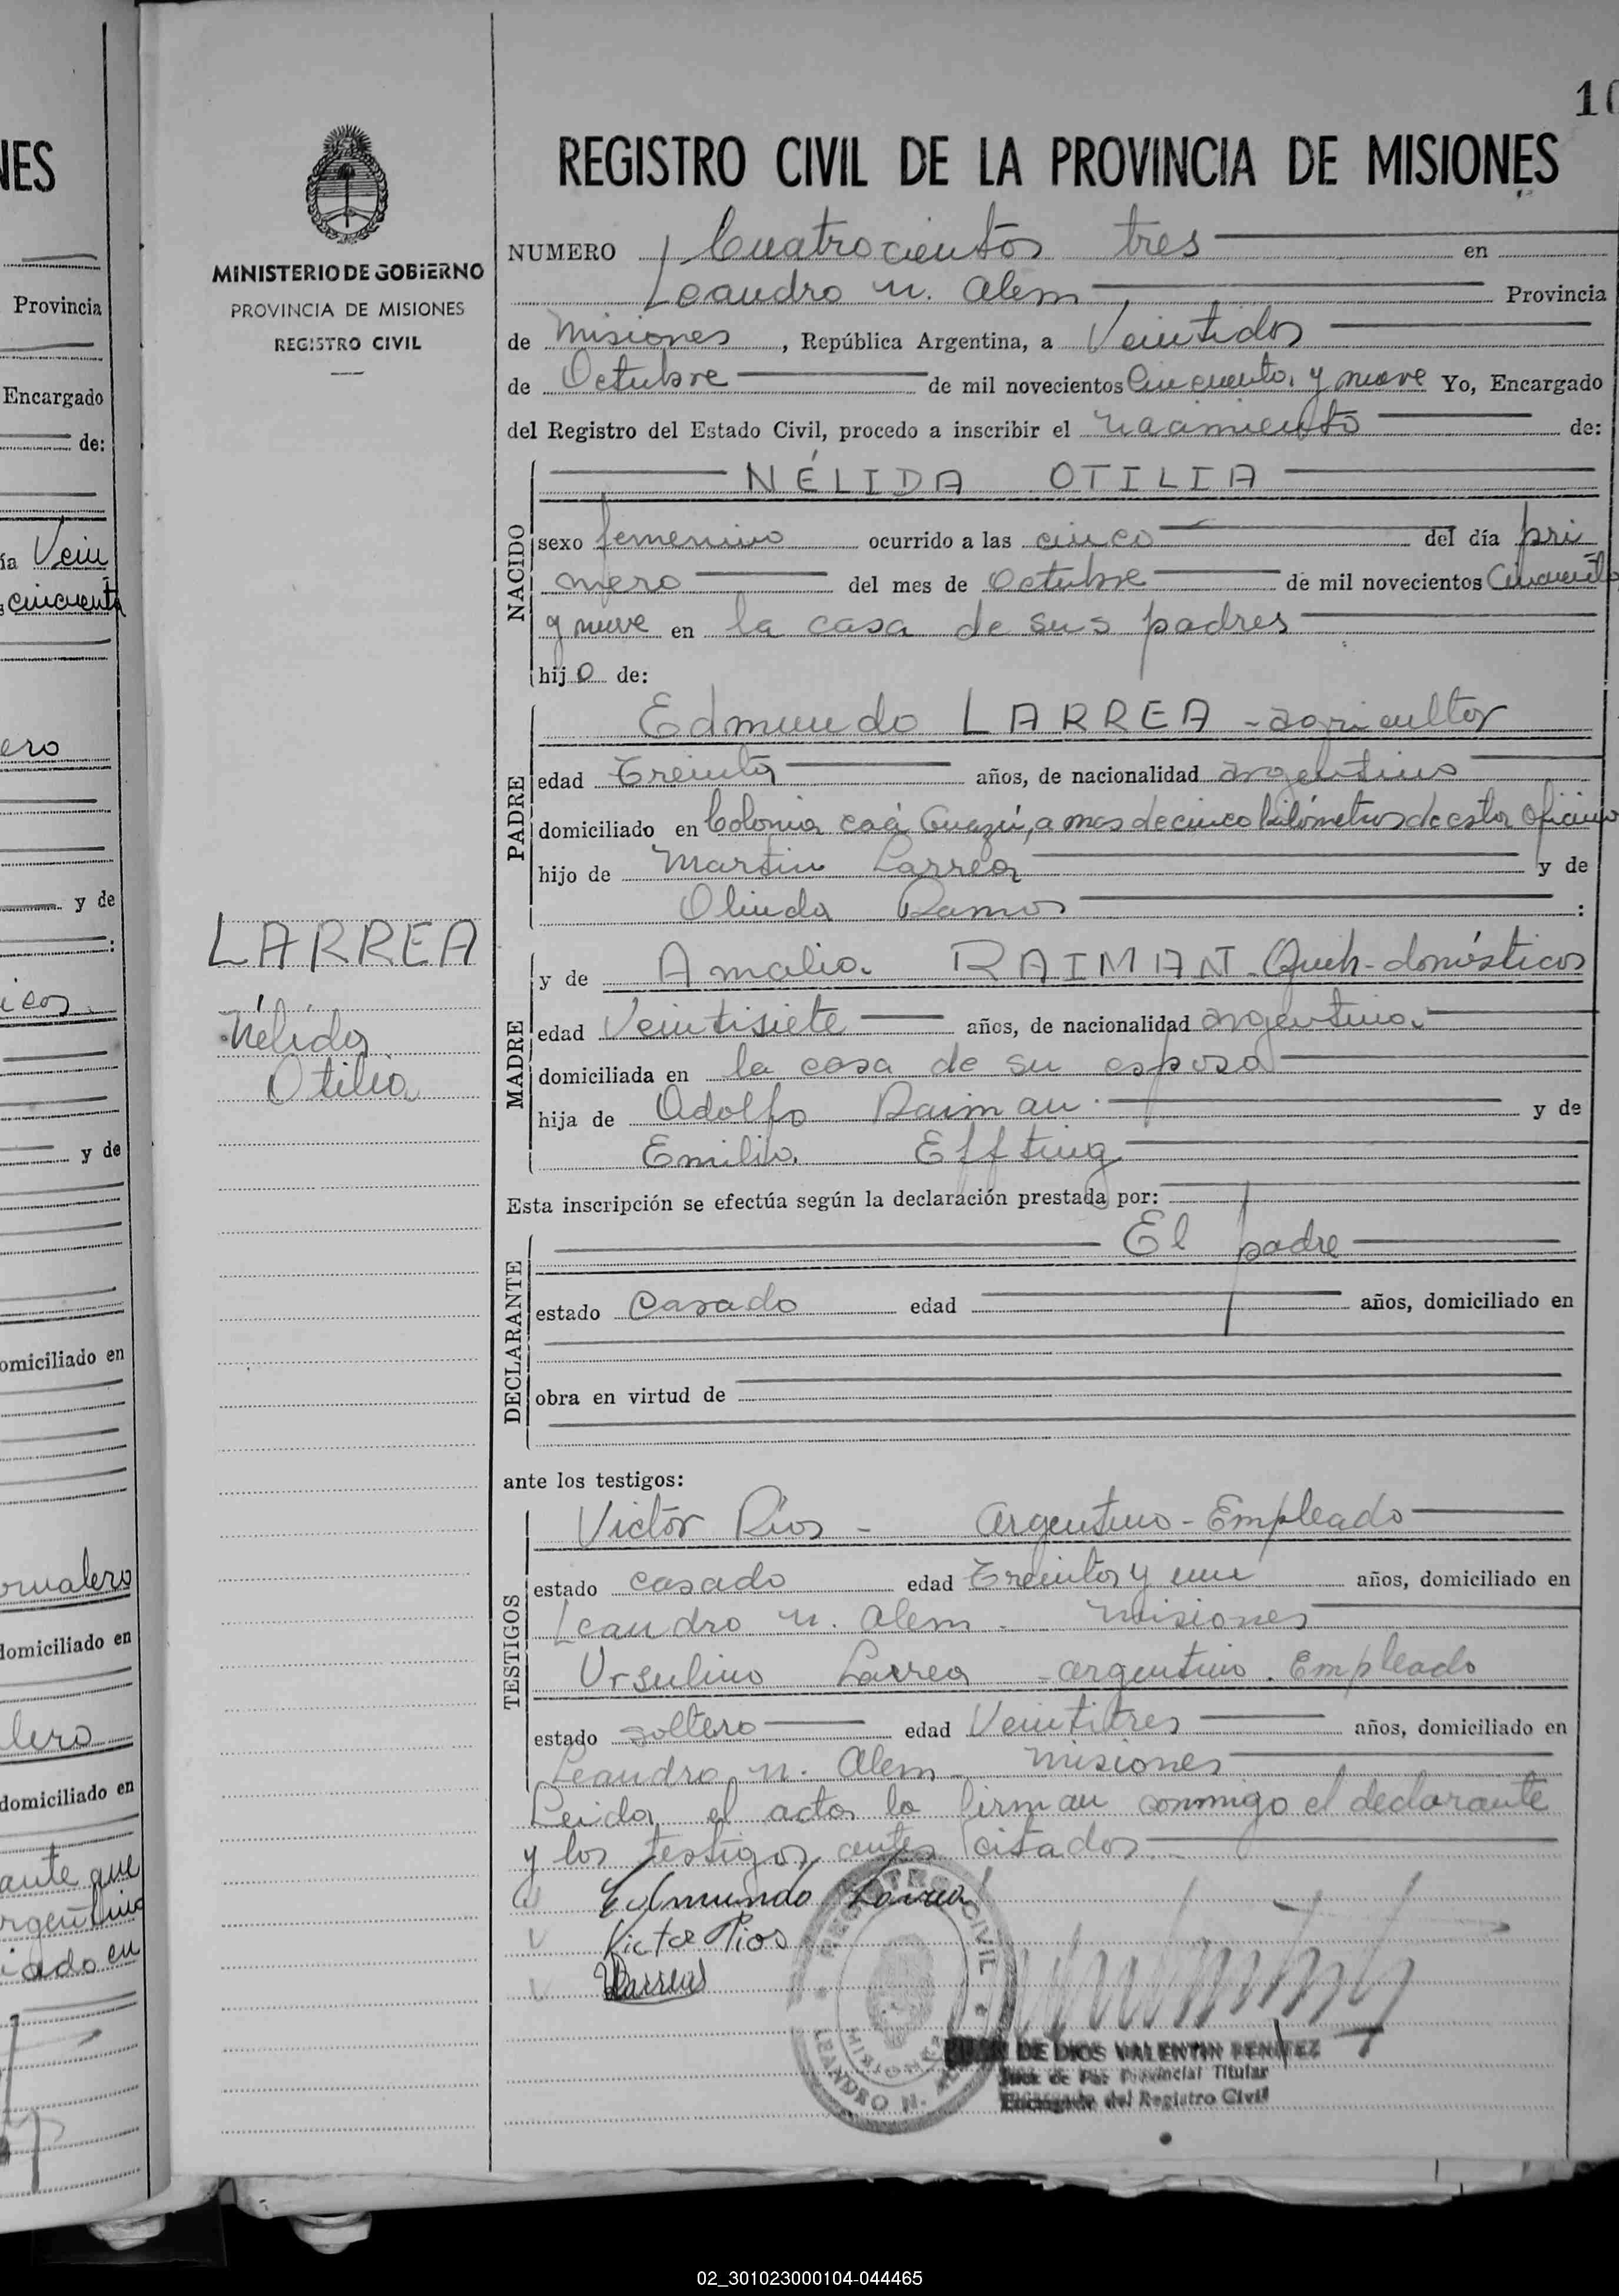 NES
Provincia
Encargado
de:
ía Vein
s cincuenta
ero
y de
icos
y de
omiciliado en
ornalero
domiciliado en
lero
domiciliado en
ante que
rgentino
iado en
MINISTERIO DE GOBIERNO
PROVINCIA DE MISIONES
REGISTRO CIVIL
LARREA
Nélida
Otilia
10
REGISTRO CIVIL DE LA PROVINCIA DE MISIONES
NUMERO Cuatrocientos tres en
Leandro N. Alem Provincia
de Misiones, República Argentina, a Veintidos
de Octubre de mil novecientos Cincuenta y nueve Yo, Encargado
del Registro del Estado Civil, procedo a inscribir el nacimiento de:
NACIDO
NÉLIDA OTILIA
sexo femenino ocurrido a las cinco del día pri
mero del mes de Octubre de mil novecientos Cincuenta
y nueve en la casa de sus padres
hij a de:
PADRE
Edmundo LARREA - agricultor
edad Treinta años, de nacionalidad argentino
domiciliado en Colonia caá Guazú, a mas de cinco kilómetros de esta Oficina
hijo de Martin Larrea y de
Olinda Ramos :
MADRE
y de Amalia RAIMAN - Queh-domésticos
edad Veintisiete años, de nacionalidad argentina
domiciliada en la casa de su esposo
hija de Adolfo Raiman y de
Emilia Effting
Esta inscripción se efectúa según la declaración prestada por:
DECLARANTE
El padre
estado Casado edad años, domiciliado en
obra en virtud de
ante los testigos:
TESTIGOS
Victor Ríos - Argentino - Empleado
estado casado edad Treinta y un años, domiciliado en
Leandro N. Alem - Misiones
Ursulino Larrea - argentino. Empleado
estado soltero edad Veintitres años, domiciliado en
Leandro N. Alem - Misiones
Leida el acta la firman conmigo el declarante
y los testigos antes citados
Edmundo Larrea
Victor Rios
ULarrea
REGISTRO CIVIL
LEANDRO N. ALEM
MISIONES
DE DIOS VALENTIN BENITEZ
Juez de Paz Provincial Titular
Encargado del Registro Civil
02_301023000104-044465